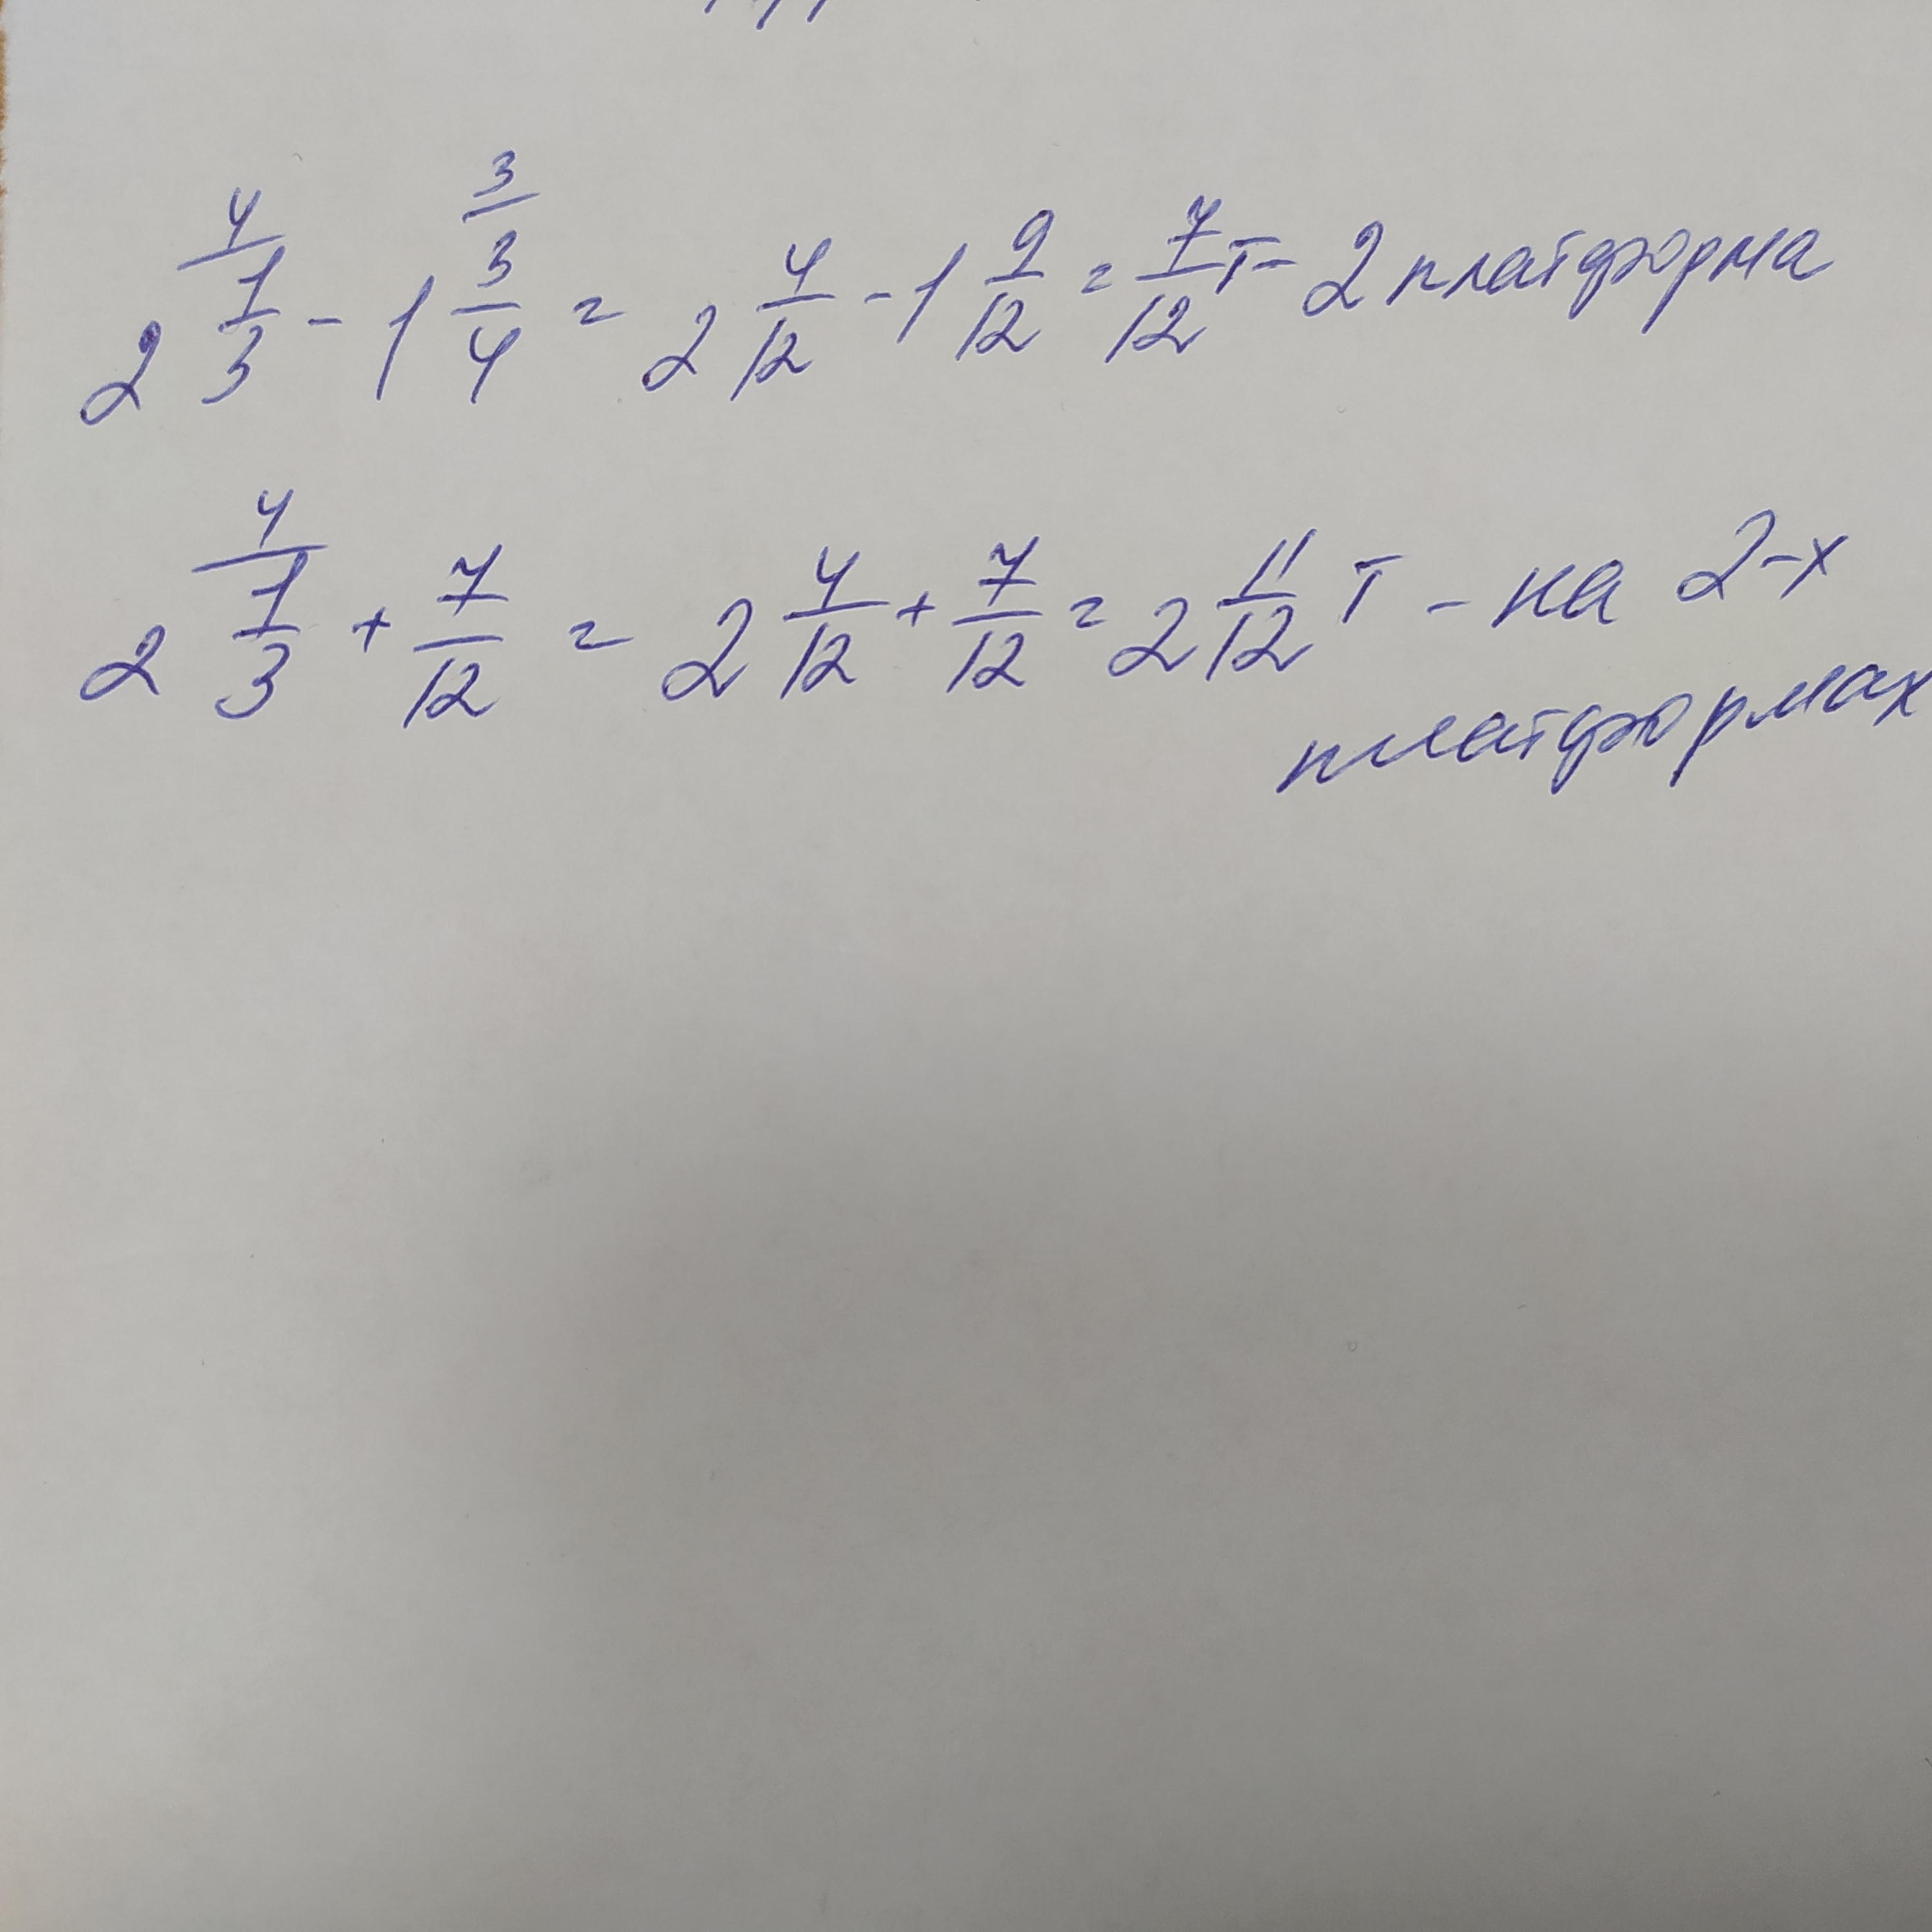 2 4/ 1/3 - 1 3/ 3/4 = 2 4/12 - 1 9/12 = 7/12 т - 2 платформа
2 4/ 1/3 + 7/12 = 2 4/12 + 7/12 = 2 11/12 т - на 2-х
платформах